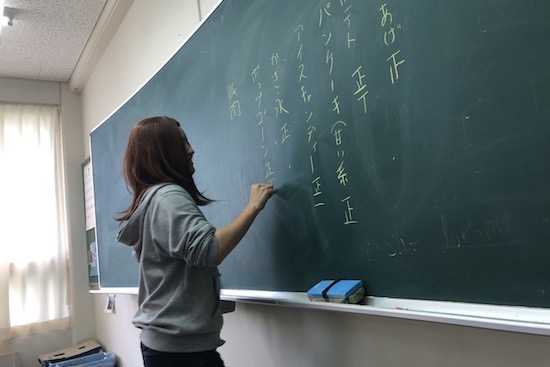 あげ正
ポテト 正丅
パンケーキ(甘い系 正
アイスキャンディー正一
かき氷正
ポップコーン正